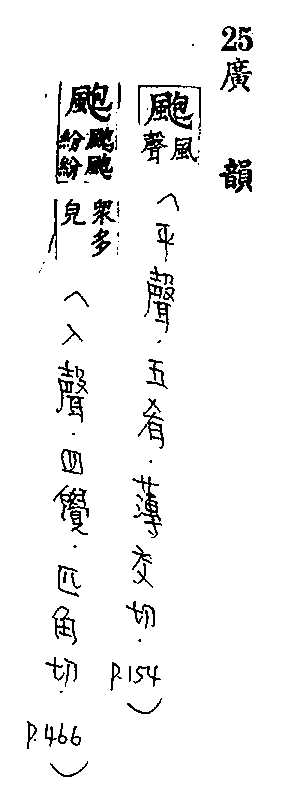 25 廣韻
颮 風聲（平聲．五肴．薄交切．P.154）
颮 颮颮紛紛眾多皃（入聲．四覺．匹角切．P.466）